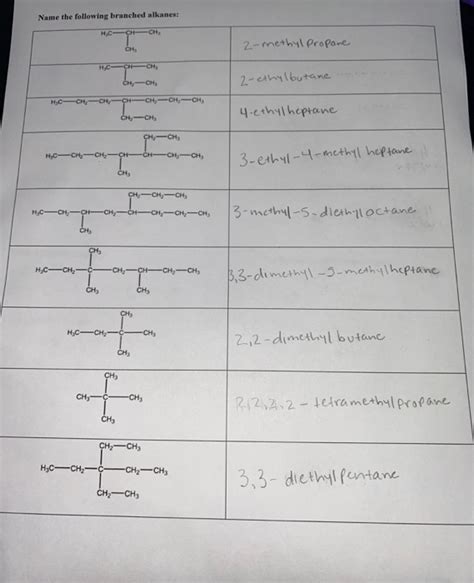 Name the following branched alkanes:
H₃C—CH—CH₃
CH₃
2-methyl propane
H₃C—CH—CH₃
CH₂—CH₃
2-ethylbutane
H₃C—CH₂—CH₂—CH—CH₂—CH₂—CH₃
CH₂—CH₃
4-ethylheptane
CH₂—CH₃
H₃C—CH₂—CH₂—CH—CH—CH₂—CH₃
CH₃
3-ethyl-4-methyl heptane
CH₂—CH₂—CH₃
H₃C—CH₂—CH—CH₂—CH—CH₂—CH₂—CH₃
CH₃
3-methyl-5-diethyloctane
CH₃
H₃C—CH₂—C—CH₂—CH—CH₂—CH₃
CH₃ CH₃
3,3-dimethyl-5-methylheptane
CH₃
H₃C—CH₂—C—CH₃
CH₃
2,2-dimethylbutane
CH₃
CH₃—C—CH₃
CH₃
2,2,2,2-tetramethylpropane
CH₂—CH₃
H₃C—CH₂—C—CH₂—CH₃
CH₂—CH₃
3,3-diethylpentane